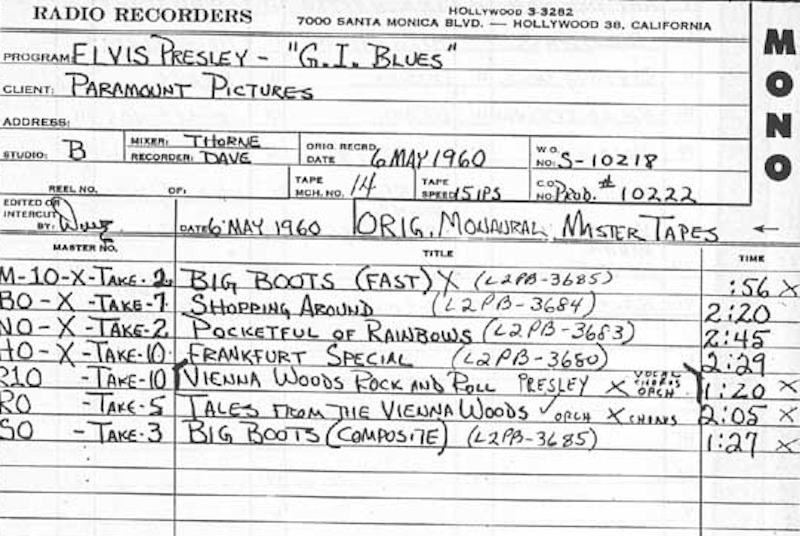 RADIO RECORDERS
HOLLYWOOD 3-3282
7000 SANTA MONICA BLVD. — HOLLYWOOD 38, CALIFORNIA
MONO
PROGRAM: ELVIS PRESLEY - "G.I. BLUES"
CLIENT: PARAMOUNT PICTURES
ADDRESS:
STUDIO: B MIXER: THORNE ORIG. RECRD. DATE 6 MAY 1960 W.O. NO: S-10218
RECORDER: DAVE
REEL NO. OF: TAPE MCH. NO. 14 TAPE SPEED 15 IPS C.O. NO: Prod. # 10222
EDITED OR INTERCUT BY: DATE 6 MAY 1960 ORIG. MONAURAL MASTER TAPES ←
MASTER NO. TITLE TIME
M-10-X-TAKE-2 BIG BOOTS (FAST) X (L2PB-3685) :56 X
BO-X-TAKE-7 SHOPPING AROUND (L2PB-3684) 2:20
NO-X-TAKE-2 POCKETFUL OF RAINBOWS (L2PB-3683) 2:45
HO-X-TAKE-10 FRANKFURT SPECIAL (L2PB-3680) 2:29
R10 -TAKE-10 VIENNA WOODS ROCK AND ROLL PRESLEY X VOCAL CHORUS ORCH 1:20 X
RO -TAKE-5 TALES FROM THE VIENNA WOODS ✓ ORCH X 2:05 X
SO -TAKE-3 BIG BOOTS (COMPOSITE) (L2PB-3685) 1:27 X